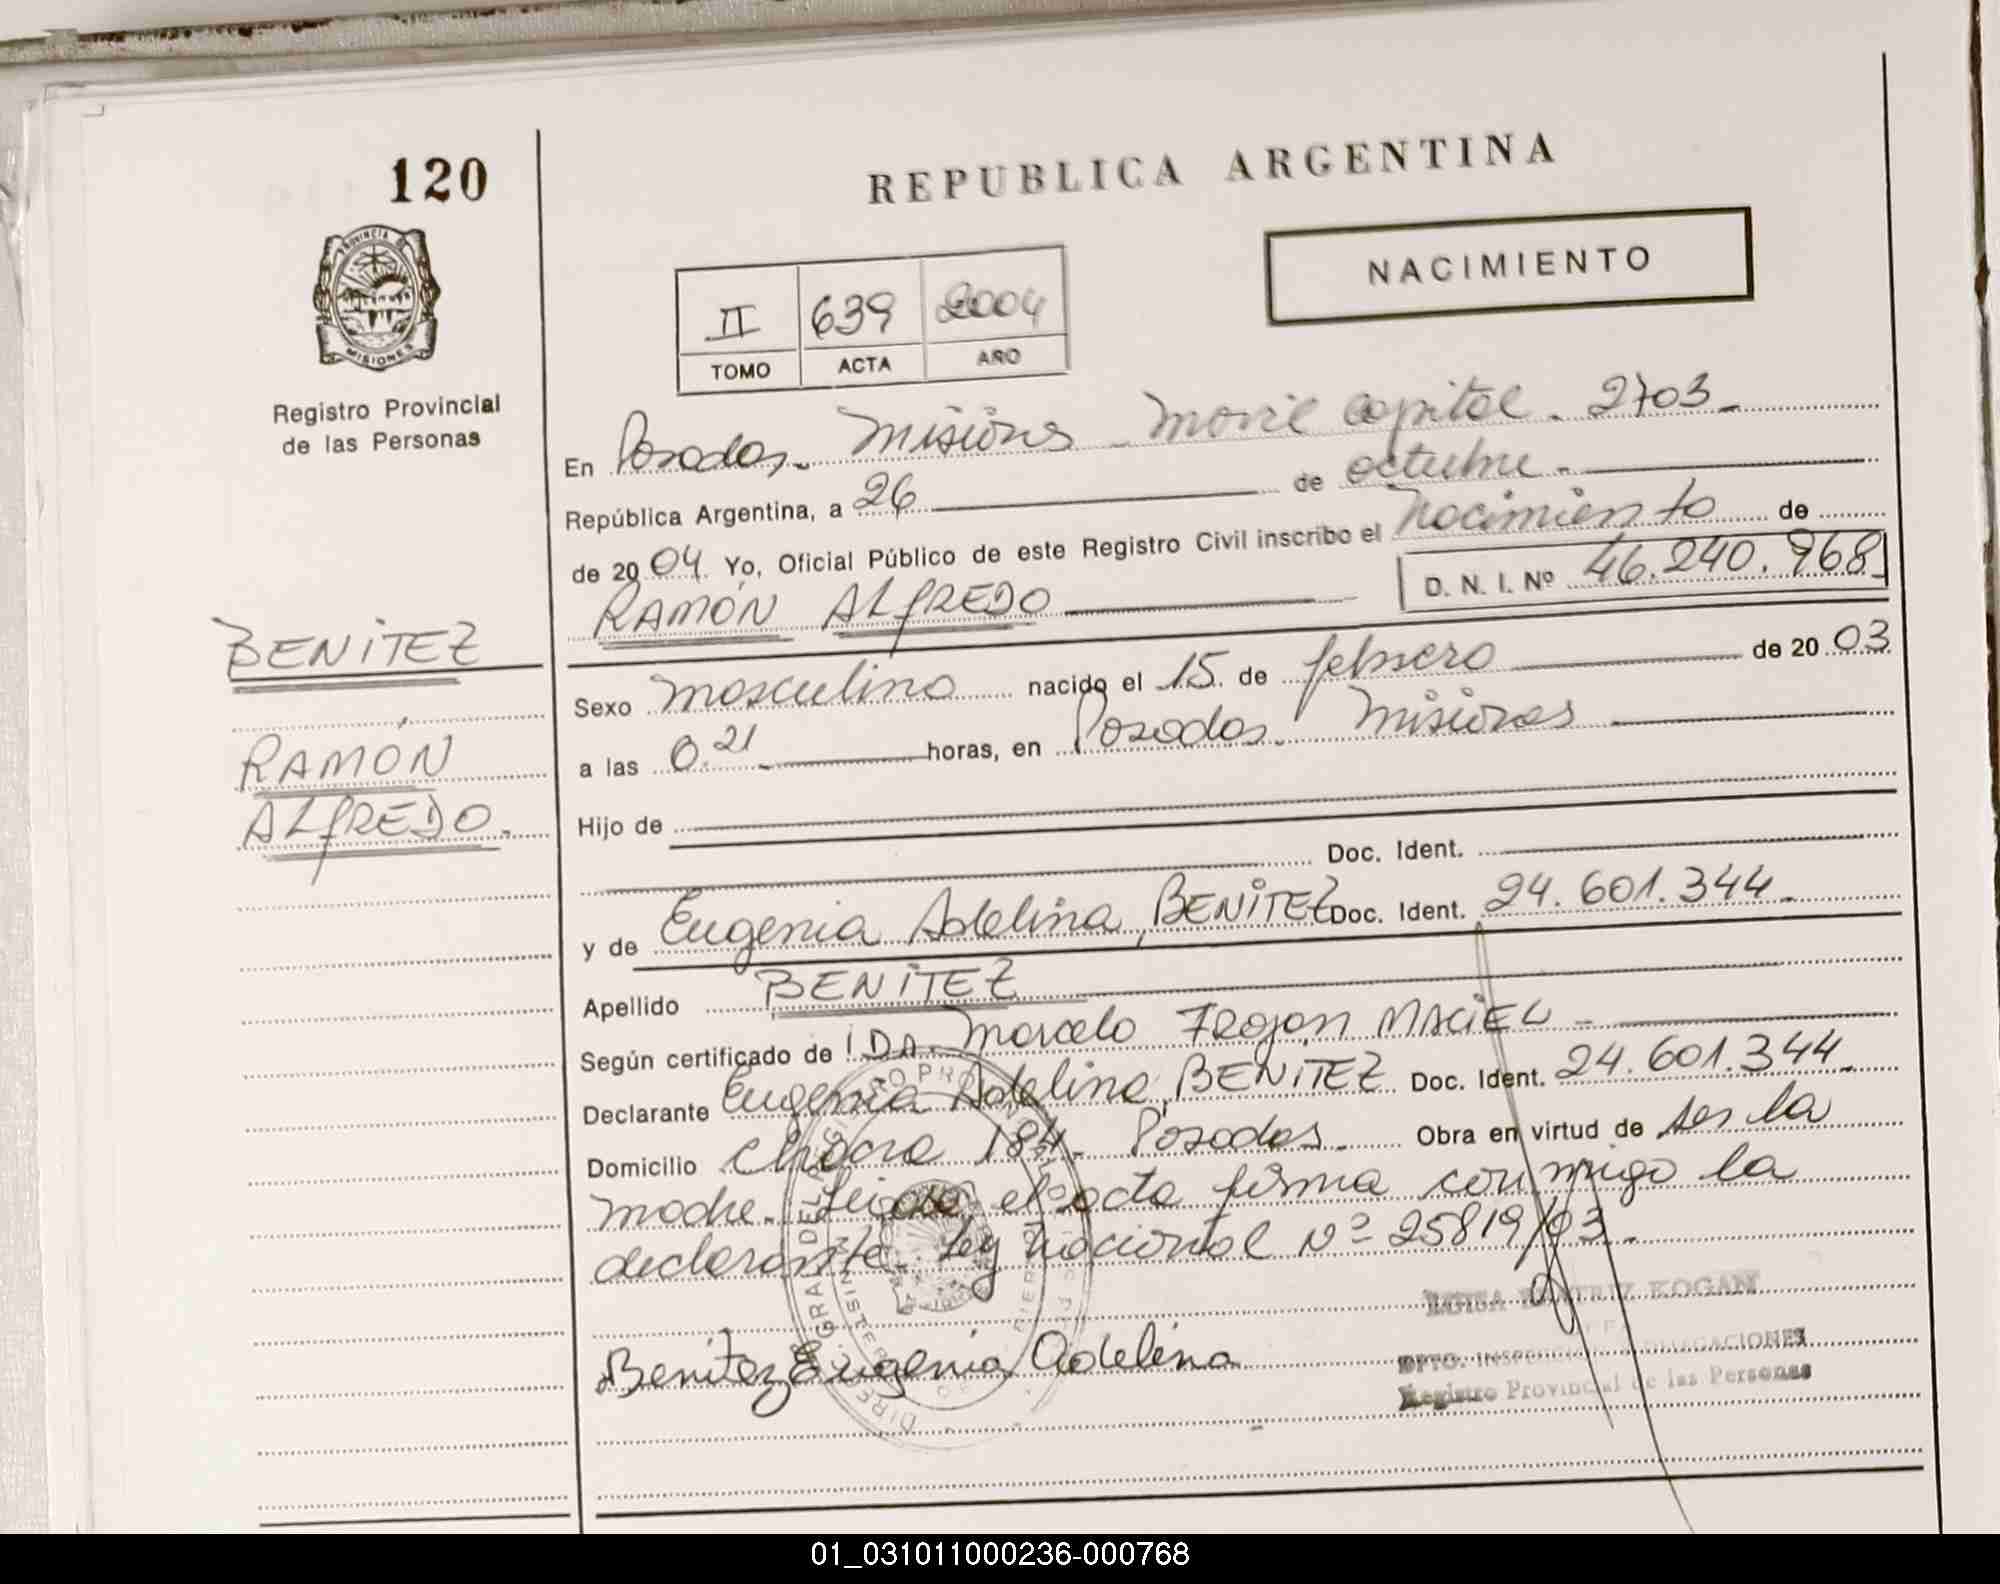 120
REPUBLICA ARGENTINA
NACIMIENTO
PROVINCIA DE
MISIONES
Registro Provincial
de las Personas
II 639 2004
TOMO ACTA AÑO
En Posadas. Misiones - Movil Capital. 2703.
República Argentina, a 26 de octubre.
de 2004. Yo, Oficial Público de este Registro Civil inscribo el Nacimiento de
RAMÓN ALFREDO D. N. I. Nº 46.240.968
BENITEZ
RAMÓN
ALFREDO.
Sexo masculino nacido el 15. de febrero de 2003
a las 0.21 horas, en Posadas. Misiones
Hijo de
Doc. Ident.
y de Eugenia Adelina, BENITEZ Doc. Ident. 24.601.344.
Apellido BENITEZ
Según certificado de Marcelo MACIEL
Declarante Eugenia Adelina, BENITEZ Doc. Ident. 24.601.344.
Domicilio Chacra 184. Posadas. Obra en virtud de ser la
madre. Leida el acta firma conmigo la
declarante. Ley Nacional Nº 25819/03.
BEATRIZ KOGAN
DPTO. INSPECCION DELEGACIONES
Registro Provincial de las Personas
Benitez Eugenia Adelina
01_031011000236-000768